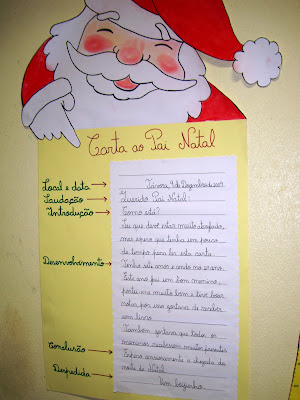 Carta ao Pai Natal
Local e data
Saudação
Introdução
Desenvolvimento
Conclusão
Despedida
Távora, 9 de Dezembro de
Querido Pai Natal:
Como está?
Sei que deve estar muito atarefado,
mas espero que tenha um pouco
de tempo para ler esta carta.
Tenho sete anos e ando no segundo ano.
Este ano fui um bom menino,
portei-me muito bem e tive boas
notas, por isso gostaria de receber
um livro.
Também gostaria que todos os
meninos recebessem muitos presentes.
Espero ansiosamente a chegada da
noite de Natal.
Um beijinho